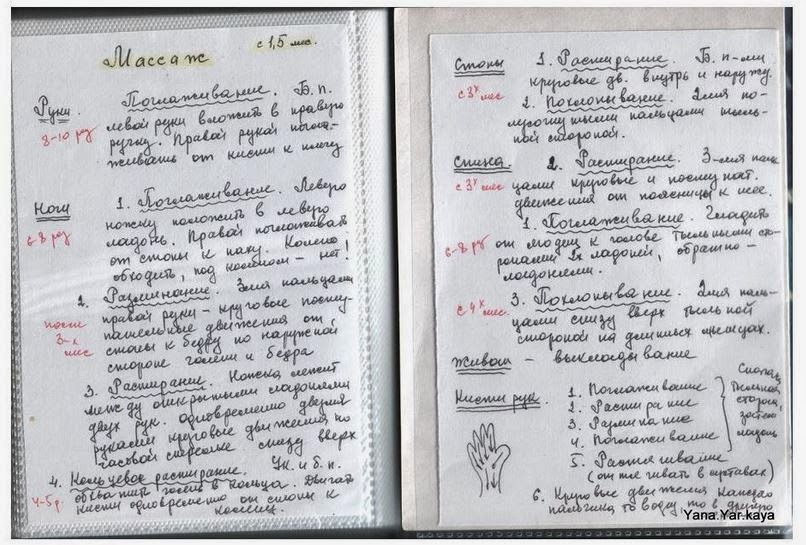 Массаж с 1,5 мес.
Руки. Поглаживание. Б. п.
8-10 раз левой руки вложить в правую
ручку. Правой рукой погла-
живать от кисти к плечу
Ноги 1. Поглаживание. Левую
ножку положить в левую
6-8 раз ладонь. Правой поглаживать
от стопы к паху. Колено
обходить, под коленом – нет!
2. Разминание. 3мя пальцами
правой руки – круговые посту-
после пательные движения от
3-х стопы к бедру по наружной
мес стороне голени и бедра
3. Растирание. Ножка лежит
между открытыми ладонями
двух рук. Одновременно двумя
руками круговые движения по
часовой стрелке снизу вверх
4. Кольцевое растирание. Ук. и б. п.
4-5 р. обхватить голень в кольца. Двигать
кисти одновременно от стопы к
колену.
Стопы 1. Растирание. Б. п-ми
круговые дв. внутрь и наружу.
с 3х мес 2. Похлопывание. 2мя по-
лусогнутыми пальцами тыль-
ной стороной.
Спина. 2. Растирание. 3-мя паль
с 3х мес цами круговые и поступат.
движения от поясницы к шее.
1. Поглаживание. Гладить
6-8 раз от ягодиц к голове тыльными сто-
ронами 2х ладоней, обратно –
ладонями.
с 4х мес. 3. Похлопывание. 2мя паль-
цами снизу вверх тыльной
стороной на длинных мышцах.
Живот – выкладывание
Кисти рук. 1. Поглаживание
2. Растирание
3. Разминание
4. Поглаживание
Сначала
тыльная
сторона,
затем
ладонь
5. Растягивание
(оттягивать в суставах)
6. Круговые движения каждого
пальчика то в одну, то в другую
Yana.Yar.kaya